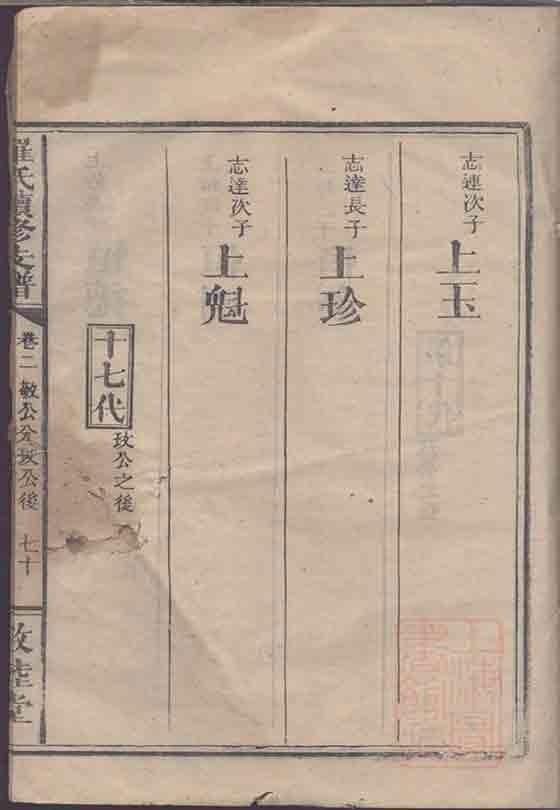 志連次子 上玉
志達長子 上珍
志達次子 上魁
十七代 玫公之後
羅氏續修支譜
卷二 敏公分玫公後 七十
敦睦堂